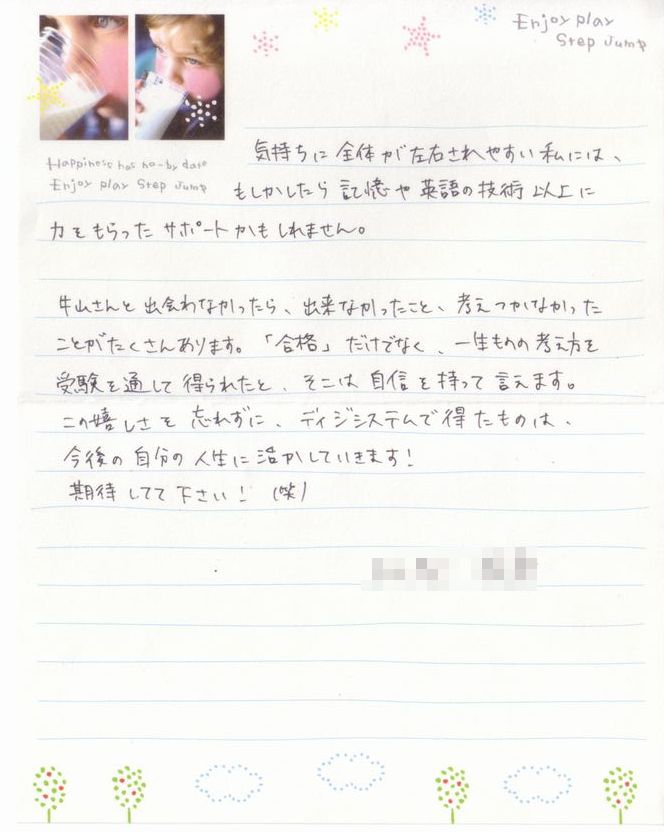 Enjoy play
Step Jump
Happiness has no-by date
Enjoy play Step Jump
気持ちに全体が左右されやすい私には、
もしかしたら記憶や英語の技術以上に
力をもらったサポートかもしれません。
牛山さんと出会わなかったら、出来なかったこと、考えつかなかった
ことがたくさんあります。「合格」だけでなく、一生ものの考え方を
受験を通して得られたと、そこは自信を持って言えます。
この嬉しさを忘れずに、ディジシステムで得たものは、
今後の自分の人生に活かしていきます!
期待してて下さい!(笑)